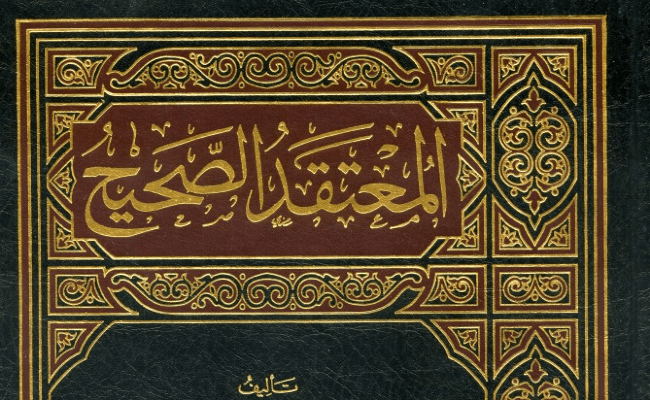 المُعْتَقَدُ الصَّحِيْحُ
تَأليفُ